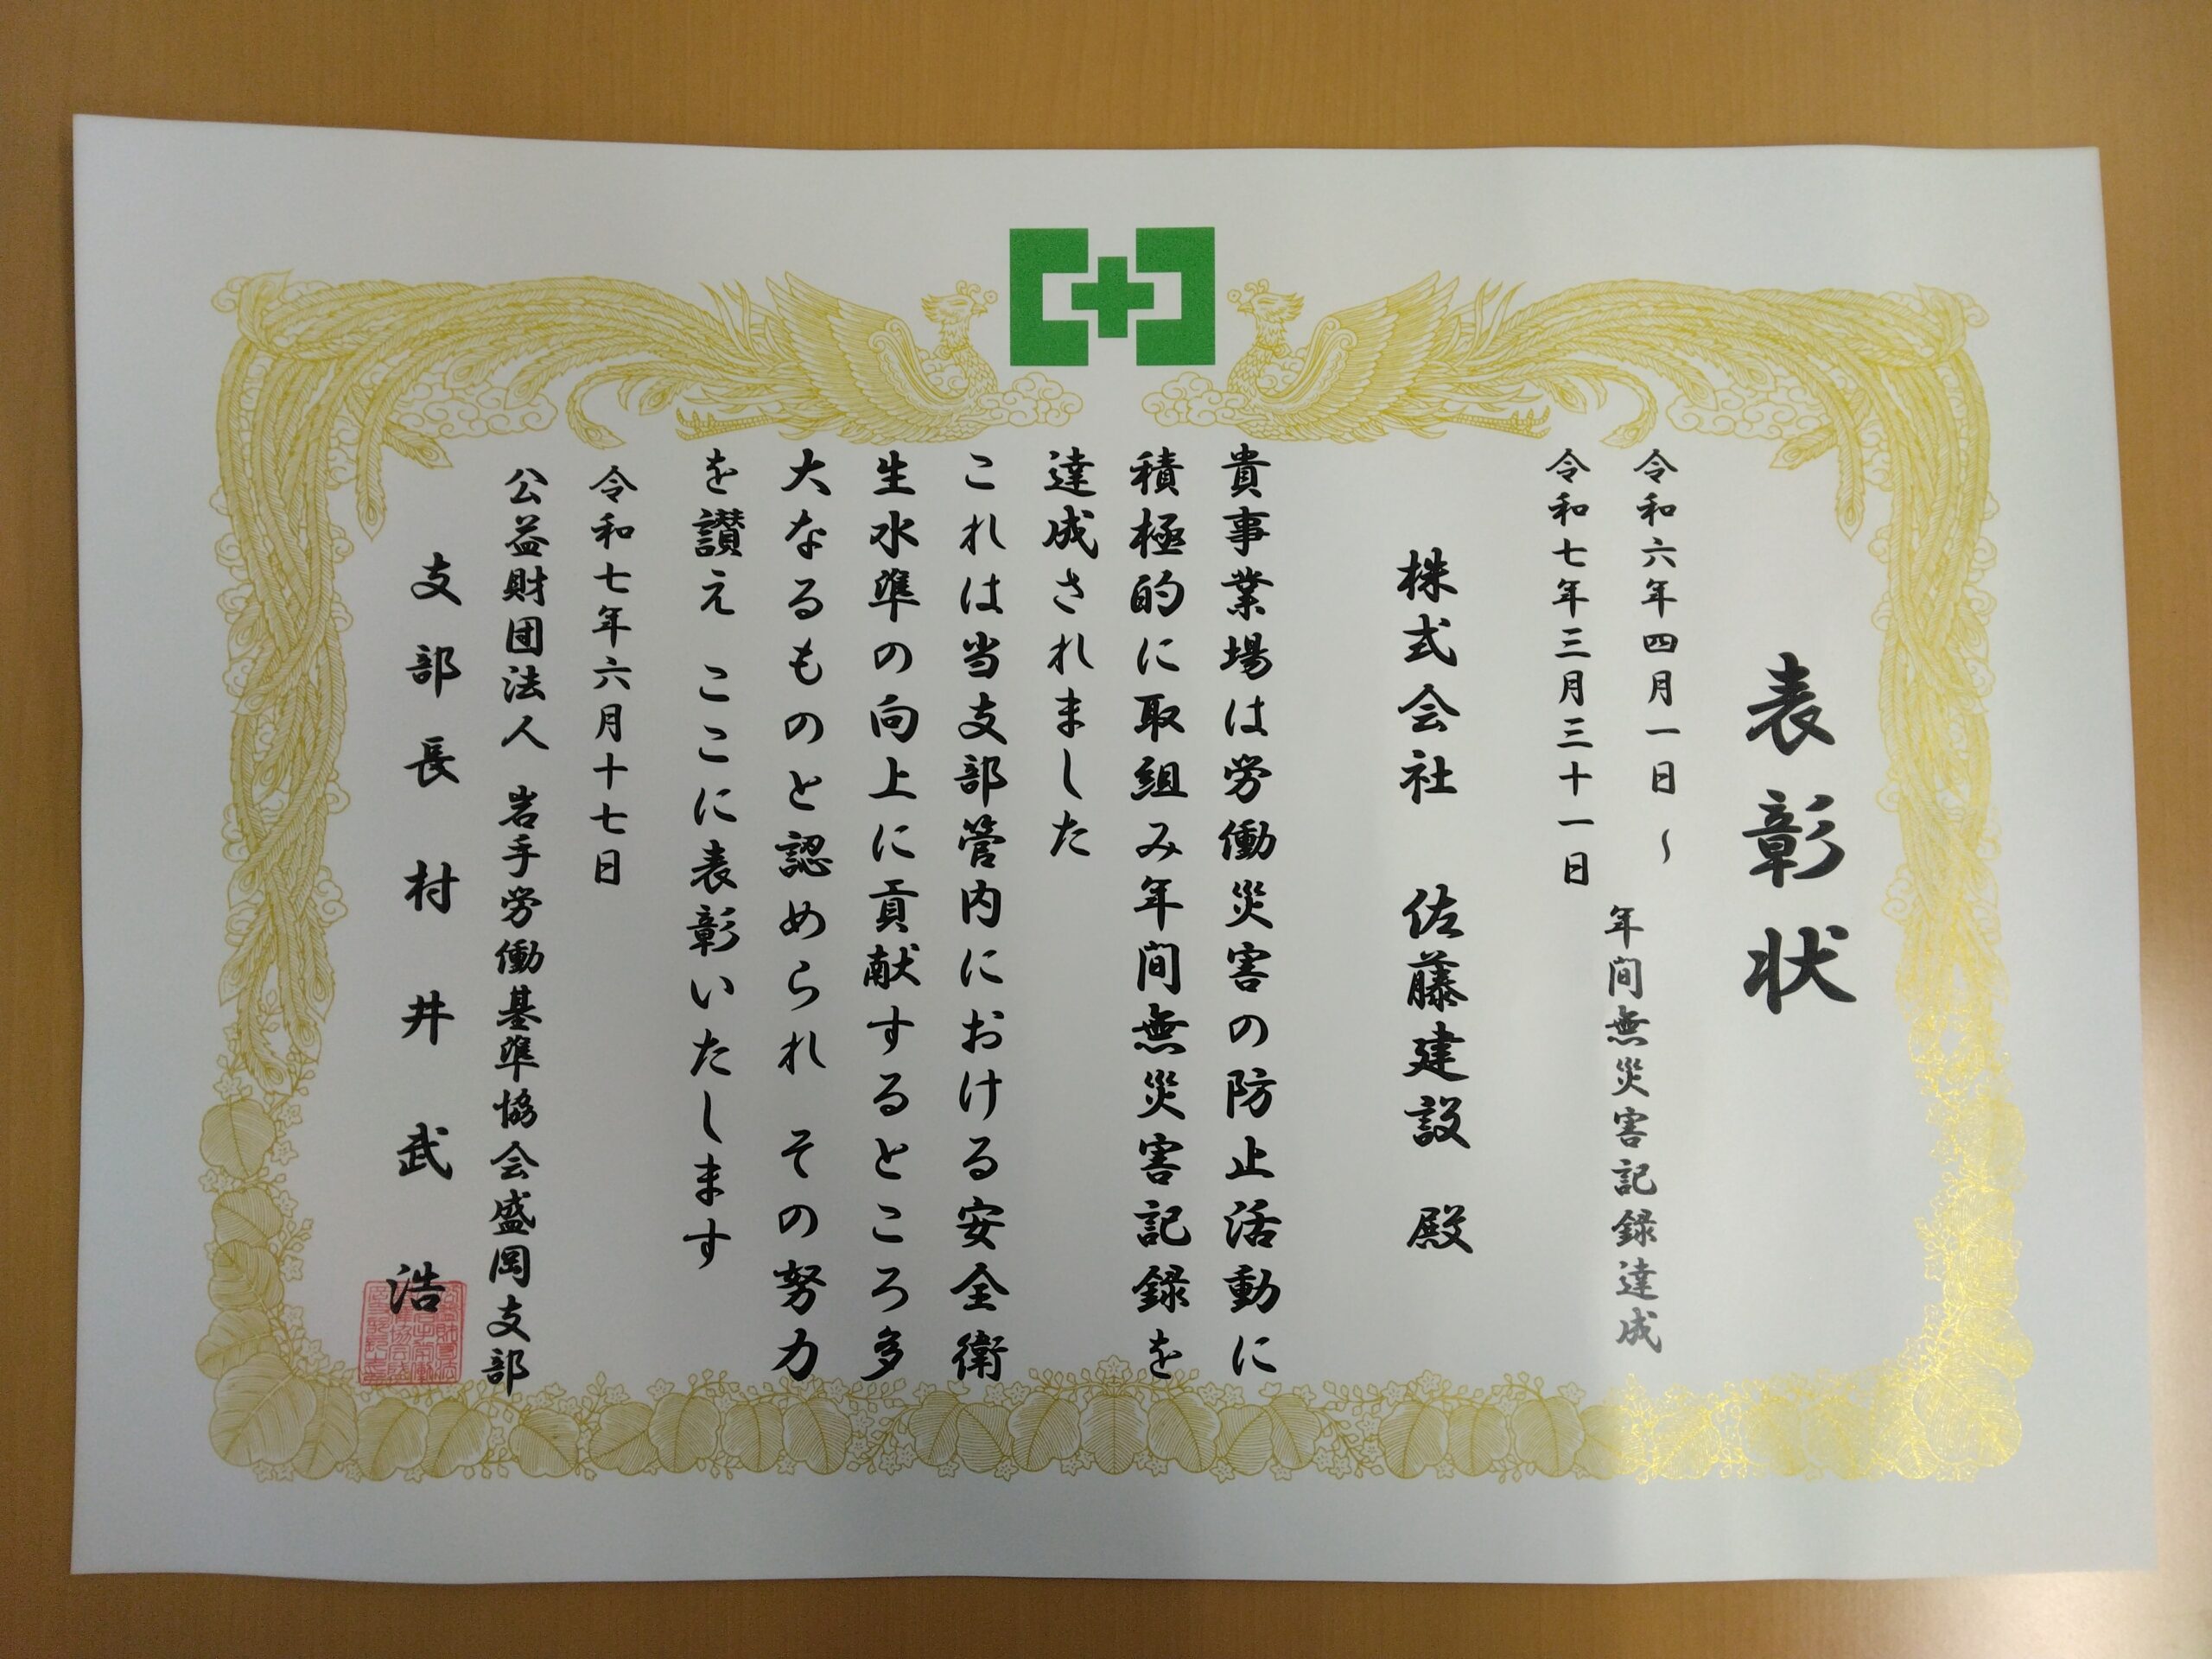 表彰状
令和六年四月一日 ～
令和七年三月三十一日
年間無災害記録達成
株式会社 佐藤建設 殿
貴事業場は労働災害の防止活動に
積極的に取組み年間無災害記録を
達成されました
これは当支部管内における安全衛
生水準の向上に貢献するところ多
大なるものと認められ その努力
を讃え ここに表彰いたします
令和七年六月十七日
公益財団法人 岩手労働基準協会盛岡支部
支部長 村井武浩